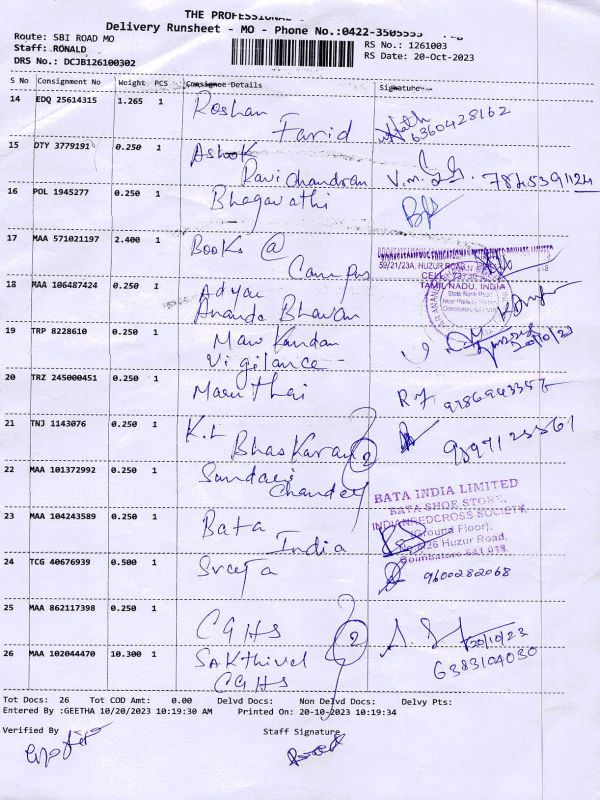 THE PROFESSIONAL
Delivery Runsheet - MO - Phone No.:0422-3505555
Route: SBI ROAD MO
RS No.: 1261003
Staff: RONALD
RS Date: 20-Oct-2023
DRS No.: DCJB126100302
S No Consignment No Weight PCS Consignee Details Signature
14 EDQ 25614315 1.265 1 Roshan
Farid 6360428162
15 DTY 3779191 0.250 1 Ashok
Ravichandran V.m. 7845391124
16 POL 1945277 0.250 1 Bhagavathi
17 MAA 571021197 2.400 1 Books @
Campus
59/21/23A, HUZUR ROAD
TAMIL NADU, INDIA
18 MAA 106487424 0.250 1 Adyar
Ananda Bhavan
State Bank Road
Near Railway Station
19 TRP 8228610 0.250 1 Manikandan
Vigilance 20/10/23
20 TRZ 245000451 0.250 1 Maruthai
21 TNJ 1143076 0.250 1 K.L
Bhaskaran 2
22 MAA 101372992 0.250 1
23 MAA 104243589 0.250 1 Bata
India
BATA INDIA LIMITED
BATA SHOE STORE,
INDIANREDCROSS SOCIETY,
(Ground Floor),
Huzur Road,
Coimbatore-641 018
24 TCG 40676939 0.500 1 9600282068
25 MAA 862117398 0.250 1 CGHS 2 20/10/23
26 MAA 102044470 10.300 1 Sakthivel
CGHS 6383104030
Tot Docs: 26 Tot COD Amt: 0.00 Delvd Docs: Non Delvd Docs: Delvy Pts:
Entered By :GEETHA 10/20/2023 10:19:30 AM Printed On: 20-10-2023 10:19:34
Verified By Staff Signature